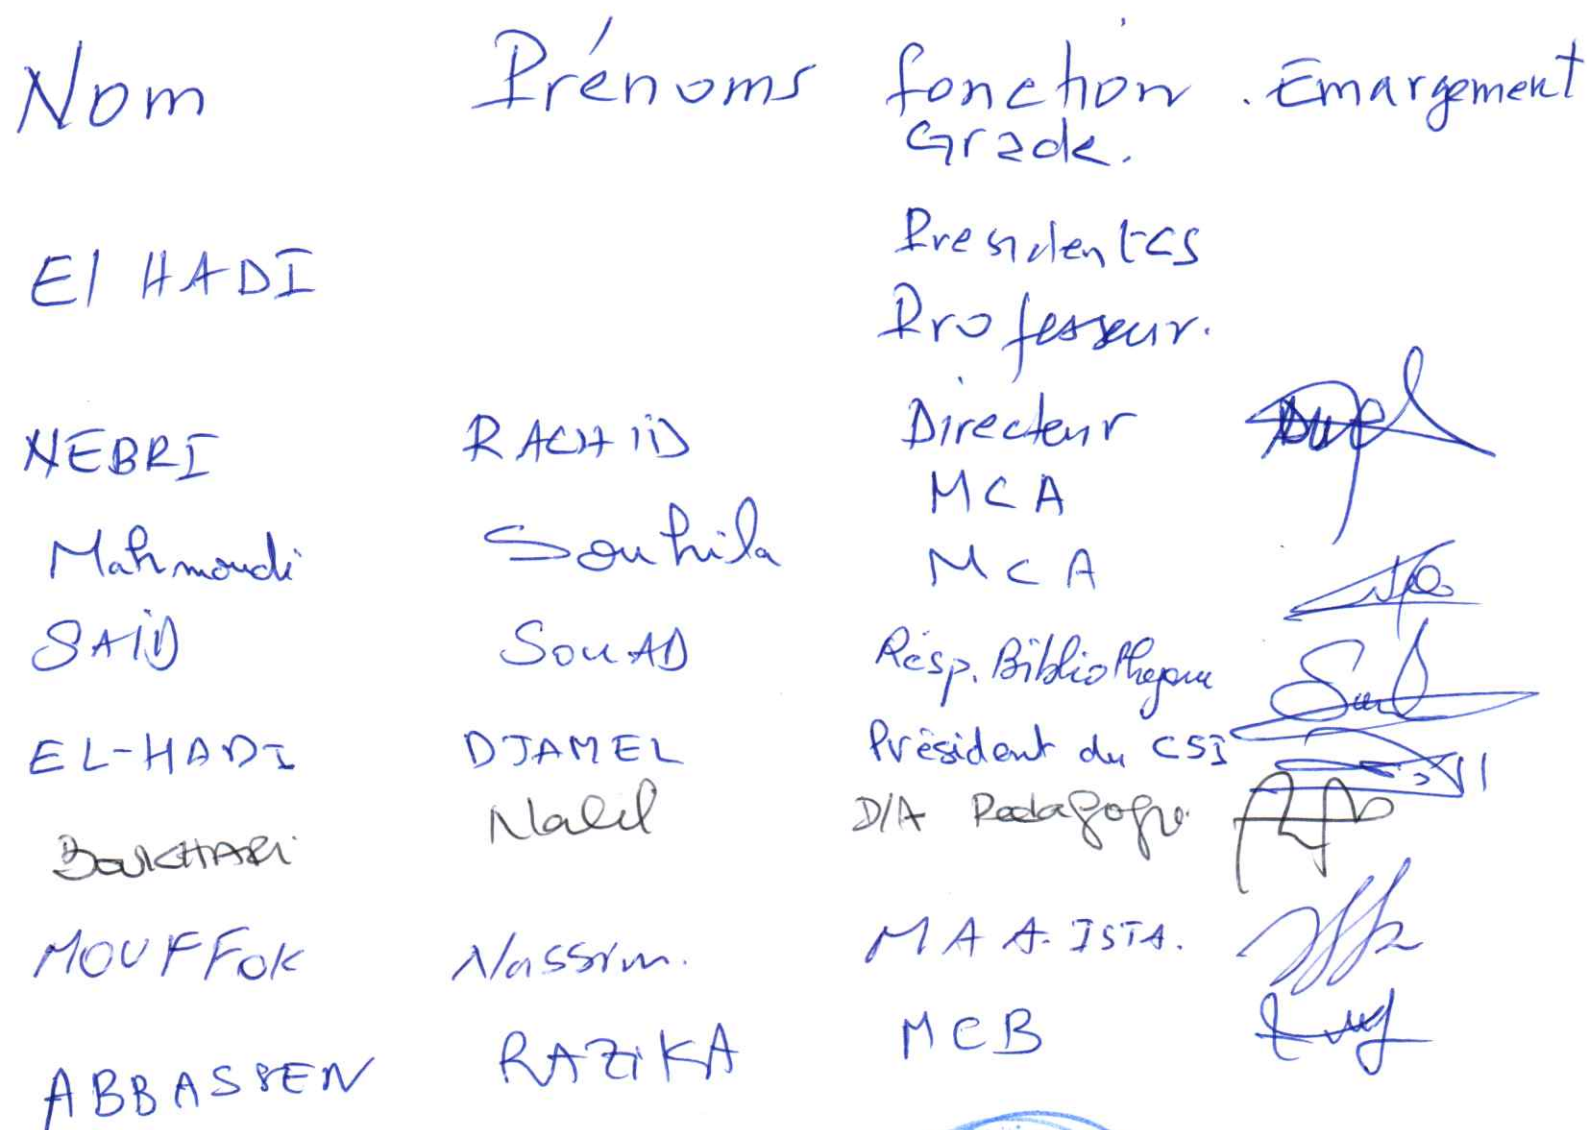 Nom Prénoms fonction . Emargement
Grade.
El HADI President CS
Professeur.
NEBRI RACHID Directeur
MCA
Mahmoudi Souhila MCA
SAID SOUAD Resp. Bibliotheque
EL-HADI DJAMEL Président du CSI
BOUKHARI Nabil D/A Pedagogie
MOUFFOK Nassim. MAA. ISTA.
ABBASSEN RAZIKA MCB